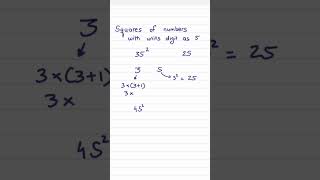 Squares of numbers
with units digit as 5
35² 25
3 5
5² = 25
3×(3+1)
3×
45²
3
3×(3+1)
3×
45²
² = 25